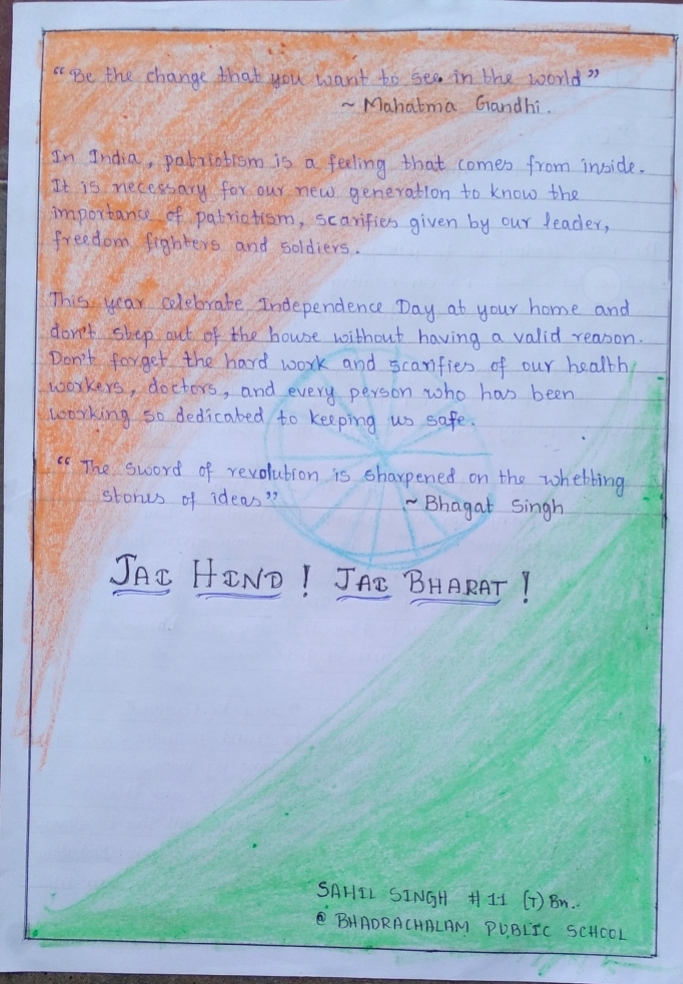 “Be the change that you want to see in the world”
~ Mahatma Gandhi.
In India, patriotism is a feeling that comes from inside.
It is necessary for our new generation to know the
importance of patriotism, scarifies given by our leader,
freedom fighters and soldiers.
This year celebrate Independence Day at your home and
don't step out of the house without having a valid reason.
Don't forget the hard work and scarifies of our health
workers, doctors, and every person who has been
working so dedicated to keeping us safe.
“ The sword of revolution is sharpened on the whetting
stones of ideas”
~ Bhagat Singh
JAI HIND! JAI BHARAT!
SAHIL SINGH # 11 (T) Bn..
@ BHADRACHALAM PUBLIC SCHOOL